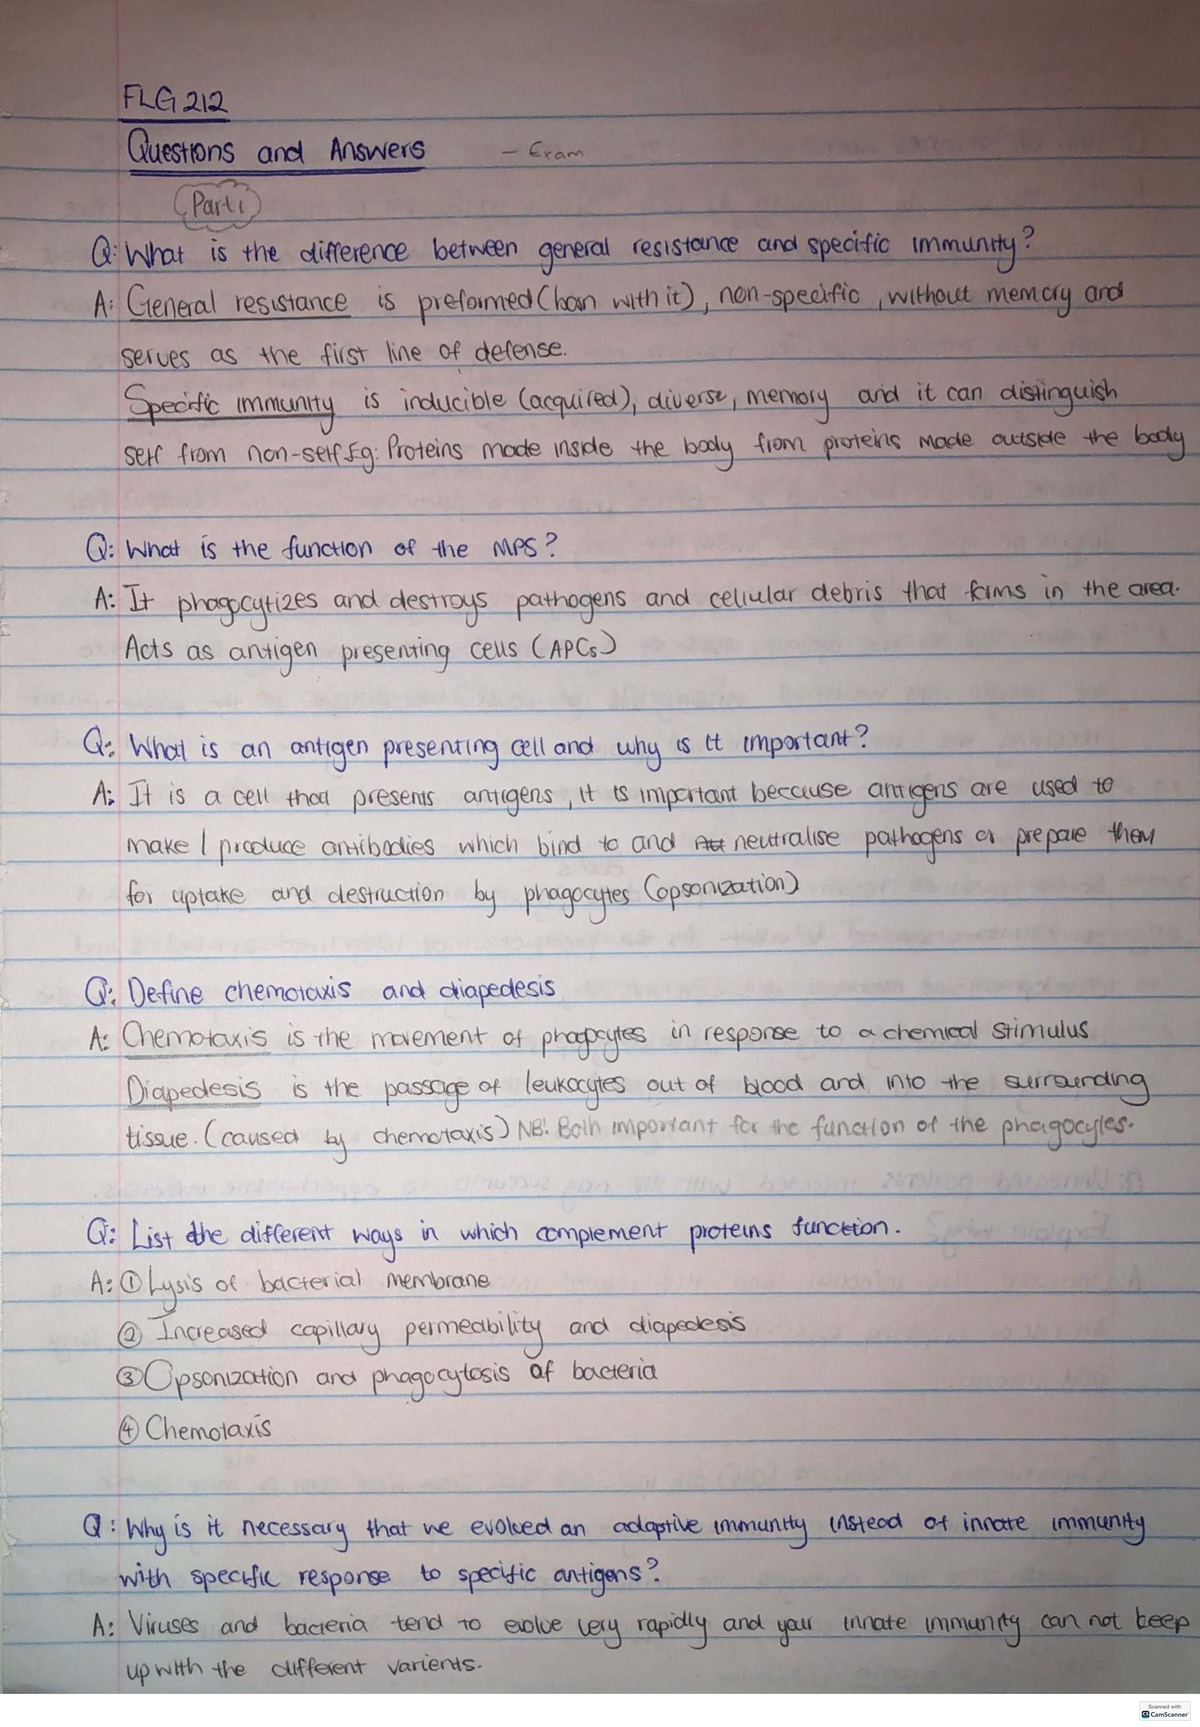 FLG 212
Questions and Answers - Exam
Part 1
Q: What is the difference between general resistance and specific immunity?
A: General resistance is preformed (born with it), non-specific, without memory and
serves as the first line of defense.
Specific immunity is inducible (acquired), diverse, memory and it can distinguish
self from non-self. Eg: Proteins made inside the body from proteins made outside the body
Q: What is the function of the MPS?
A: It phagocytizes and destroys pathogens and cellular debris that forms in the area.
Acts as antigen presenting cells (APCs)
Q: What is an antigen presenting cell and why is it important?
A: It is a cell that presents antigens, it is important because antigens are used to
make / produce antibodies which bind to and neutralise pathogens or prepare them
for uptake and destruction by phagocytes (opsonization)
Q: Define chemotaxis and diapedesis
A: Chemotaxis is the movement of phagocytes in response to a chemical stimulus
Diapedesis is the passage of leukocytes out of blood and into the surrounding
tissue. (caused by chemotaxis) NB! Both important for the function of the phagocytes.
Q: List the different ways in which complement proteins function.
A: ① Lysis of bacterial membrane
② Increased capillary permeability and diapedesis
③ Opsonization and phagocytosis of bacteria
④ Chemotaxis
Q: Why is it necessary that we evolved an adaptive immunity instead of innate immunity
with specific response to specific antigens?
A: Viruses and bacteria tend to evolve very rapidly and your innate immunity can not keep
up with the different varients.
Scanned with
CamScanner